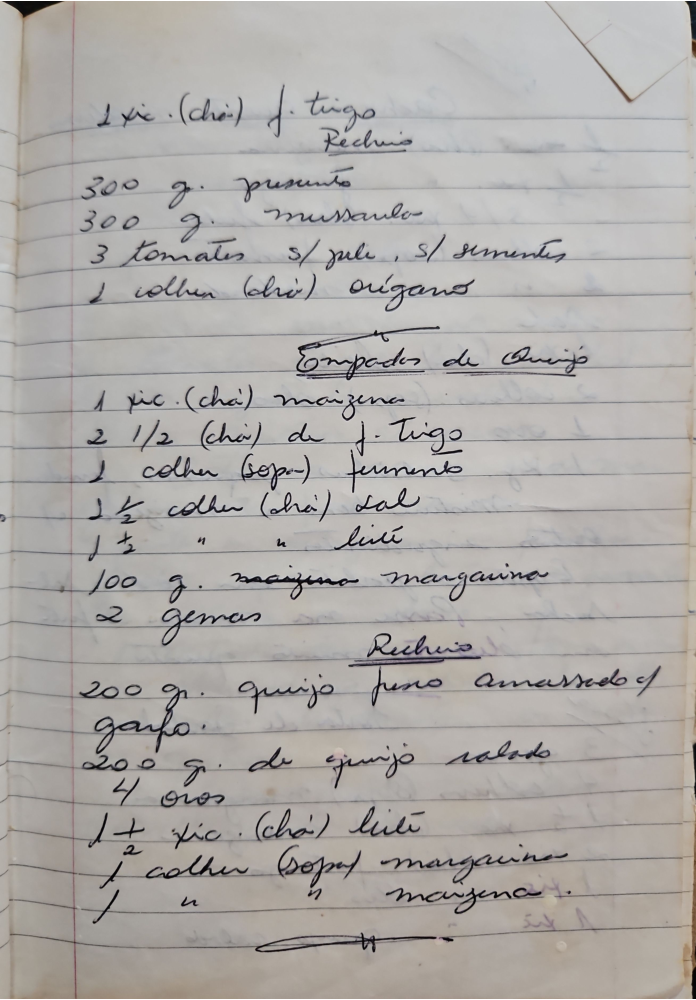 1 xic. (chá) f. trigo
Recheio
300 g. presunto
300 g. mussarela
3 tomates s/ pele, s/ sementes
1 colher (chá) orégano
Empadas de Queijo
1 xic. (chá) maizena
2 1/2 (chá) de f. Trigo
1 colher (sopa) fermento
1 1/2 colher (chá) sal
1 1/2 " " leite
100 g. maizena margarina
2 gemas
Recheio
200 gr. queijo fresco amassado c/
garfo.
200 gr. de queijo ralado
4 ovos
1 1/2 xic. (chá) leite
1 colher (sopa) margarina
1 " " maizena.